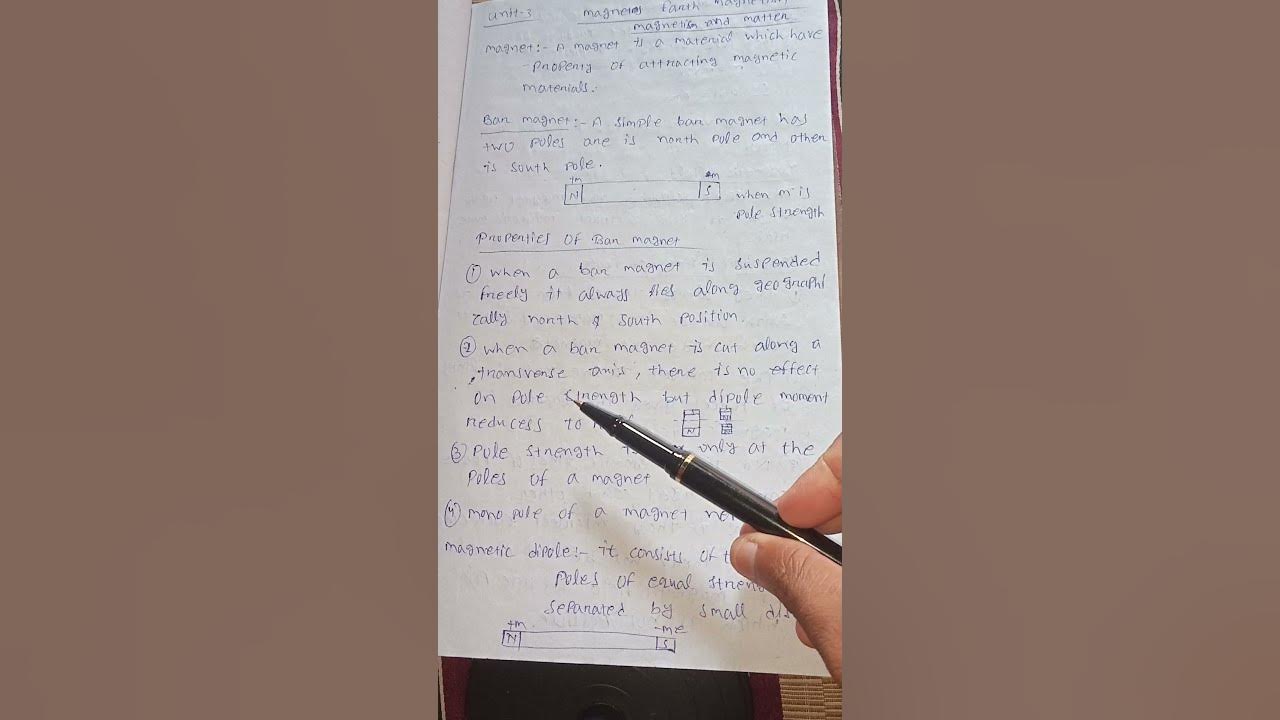 Unit-3 magnets Earth magnetism
magnetism and matter
magnet:- A magnet is a material which have
property of attracting magnetic
materials.
Bar magnet:- A simple bar magnet has
two poles one is north pole and other
is south pole.
+m -m
N S when m is
pole strength
Properties of Bar magnet
① when a bar magnet is suspended
freely it always lies along geographi
cally north & south position.
② when a bar magnet is cut along a
transverse axis, there is no effect
on pole strength but dipole moment
reducess to
N
③ Pole strength only at the
poles of a magnet
④ mono pole of a magnet
magnetic dipole:- it consists of
poles of equal
separated by small
+m -m
N S